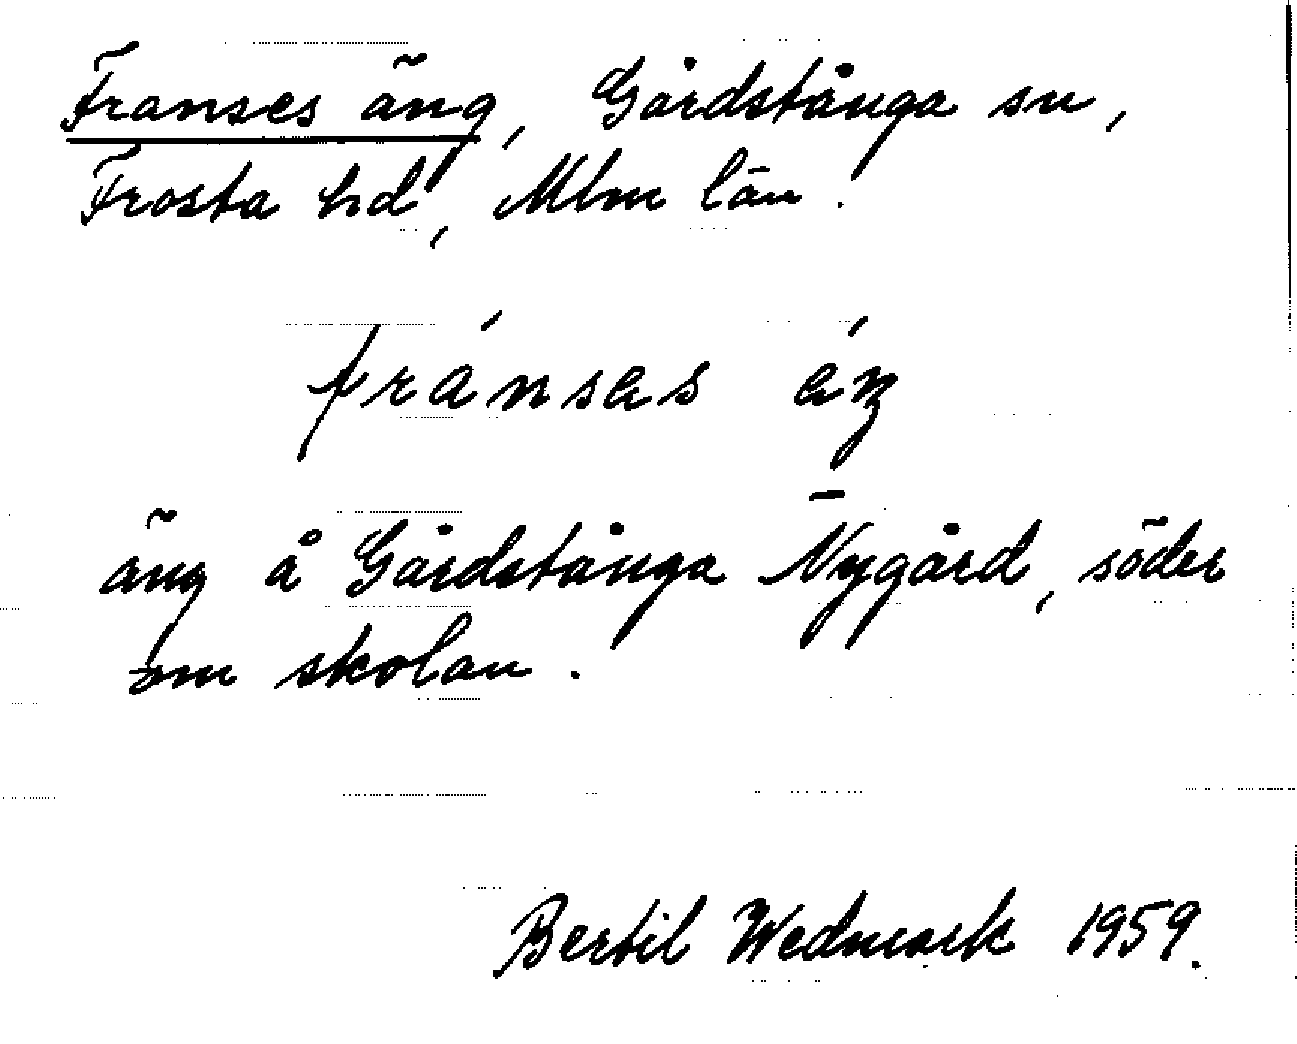 Franses äng, Gårdstånga sn,
Frosta hd, Mlm län.
fránsas ǽŋ
äng å Gårdstånga Nygård, söder
om skolan.
Bertil Wedmark 1959.